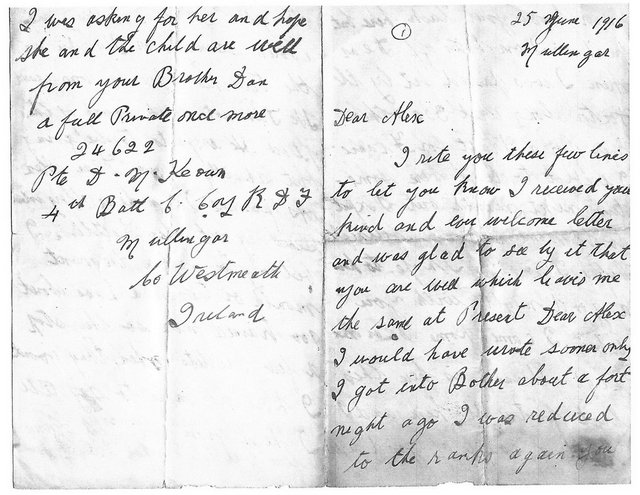 ①
25 June 1916
Mullingar
Dear Alex
I rite you these few lines
to let you know I received your
kind and ever welcome letter
and was glad to see by it that
you are well which leavis me
the same at Present Dear Alex
I would have wrote sooner only
I got into Bother about a fort
night ago I was reduced
to the ranks again you
I was asking for her and hope
she and the child are well
from your Brother Dan
a full Private once more
24622
Pte D. McKeown
4th Batt C. Coy R D F
Mullingar
Co Westmeath
Ireland